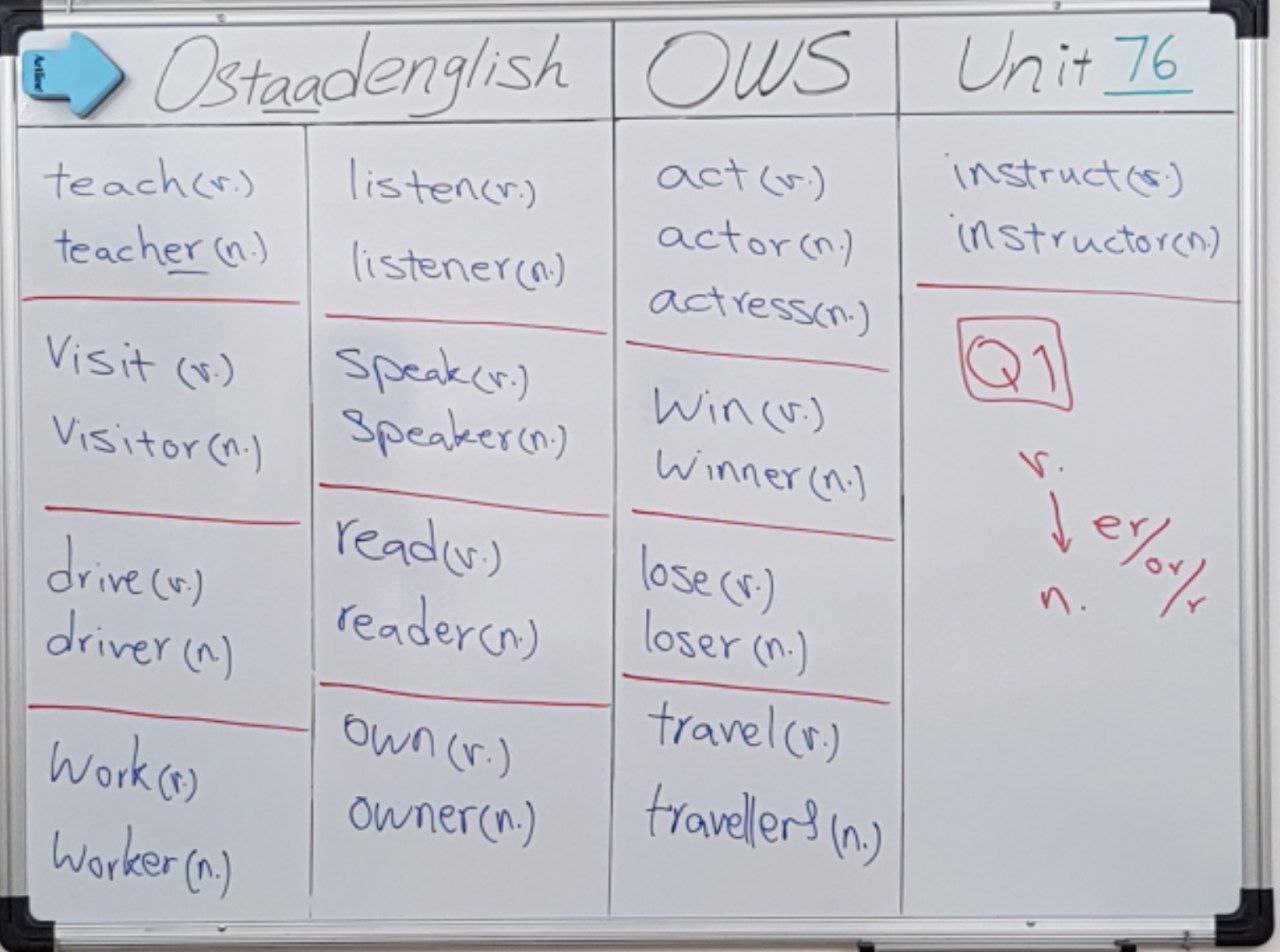 Artline
Ostaadenglish
OWS
Unit 76
teach (v.)
teacher (n.)
Visit (v.)
Visitor (n.)
drive (v.)
driver (n.)
Work (v.)
Worker (n.)
listen (v.)
listener (n.)
Speak (v.)
Speaker (n.)
read (v.)
reader (n.)
own (v.)
owner (n.)
act (v.)
actor (n.)
actress (n.)
Win (v.)
Winner (n.)
lose (v.)
loser (n.)
travel (v.)
travellers (n.)
instruct (v.)
instructor (n.)
Q1
v.
er/or/r
n.